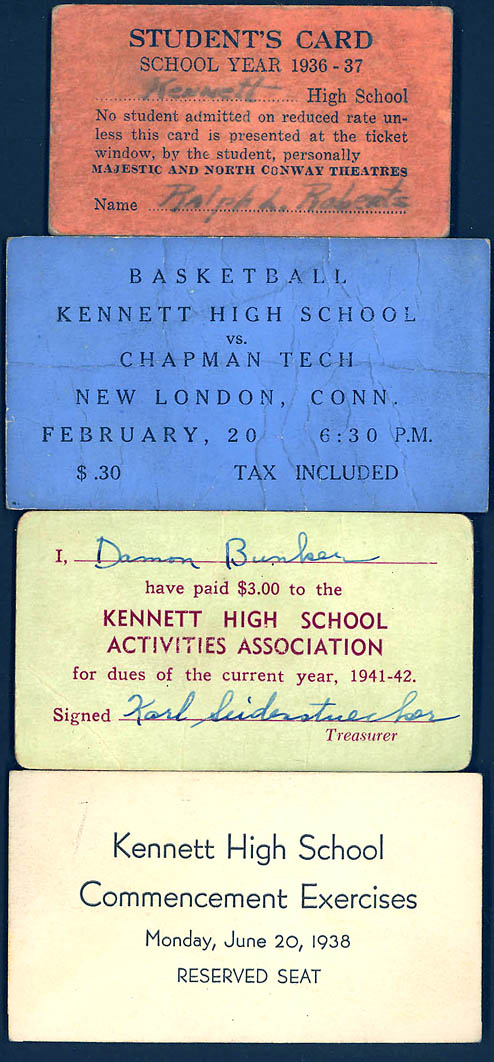 STUDENT'S CARD
SCHOOL YEAR 1936 - 37
Kennett High School
No student admitted on reduced rate un-
less this card is presented at the ticket
window, by the student, personally
MAJESTIC AND NORTH CONWAY THEATRES
Name Ralph L. Roberts
BASKETBALL
KENNETT HIGH SCHOOL
vs.
CHAPMAN TECH
NEW LONDON, CONN.
FEBRUARY, 20 6:30 P.M.
$ .30 TAX INCLUDED
I, Damon Bunker
have paid $3.00 to the
KENNETT HIGH SCHOOL
ACTIVITIES ASSOCIATION
for dues of the current year, 1941-42.
Signed Karl Seiderstuecker
Treasurer
Kennett High School
Commencement Exercises
Monday, June 20, 1938
RESERVED SEAT